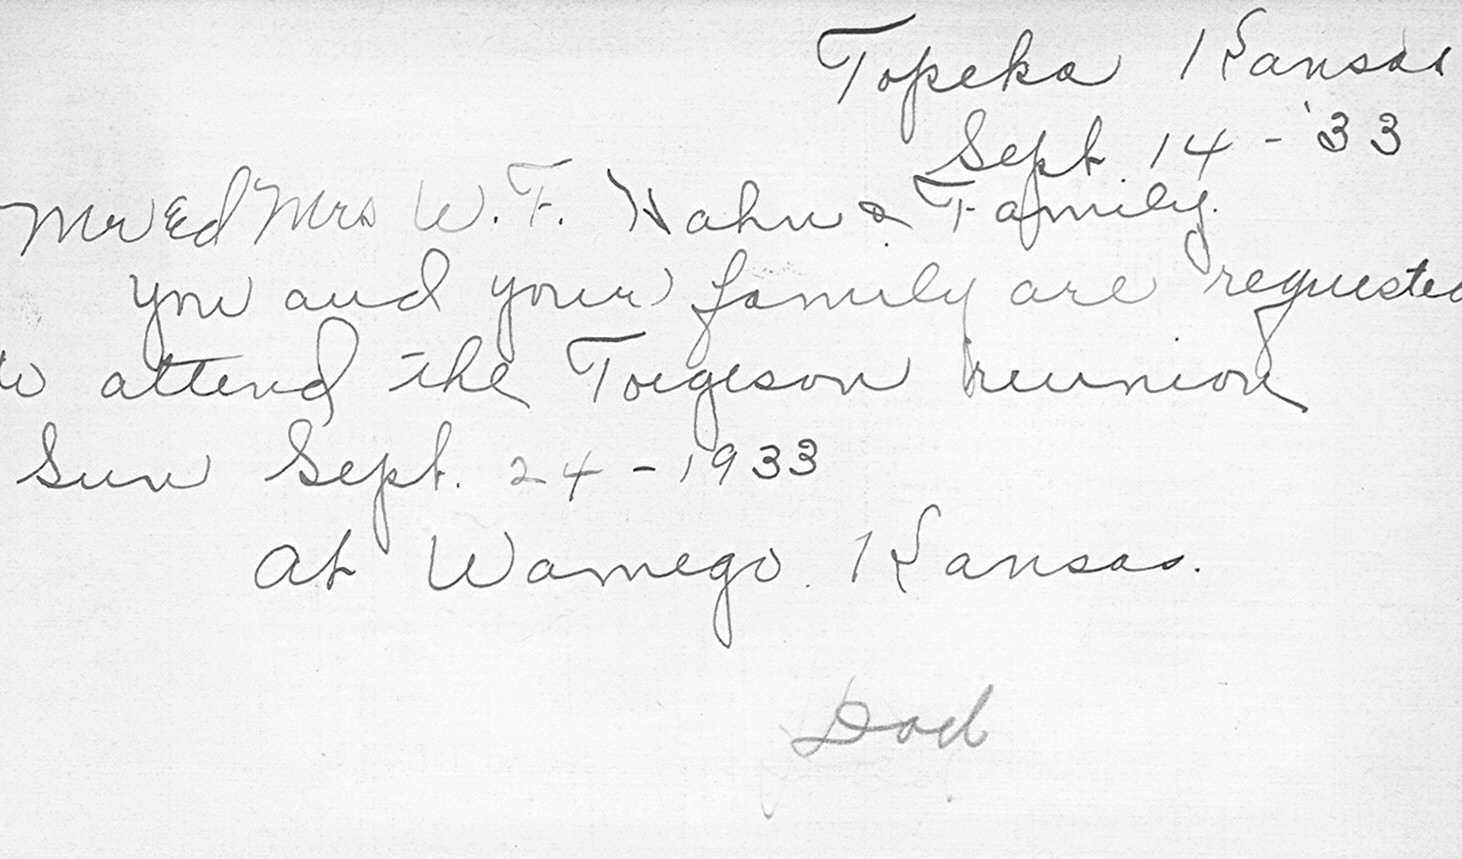 Topeka Kansas
Sept. 14 - '33
Mr Ed Mrs W. F. Hahn & Family.
You and your family are requested
to attend the Torgeson reunion
Sun Sept. 24 - 1933
at Wamego. Kansas.
Dad